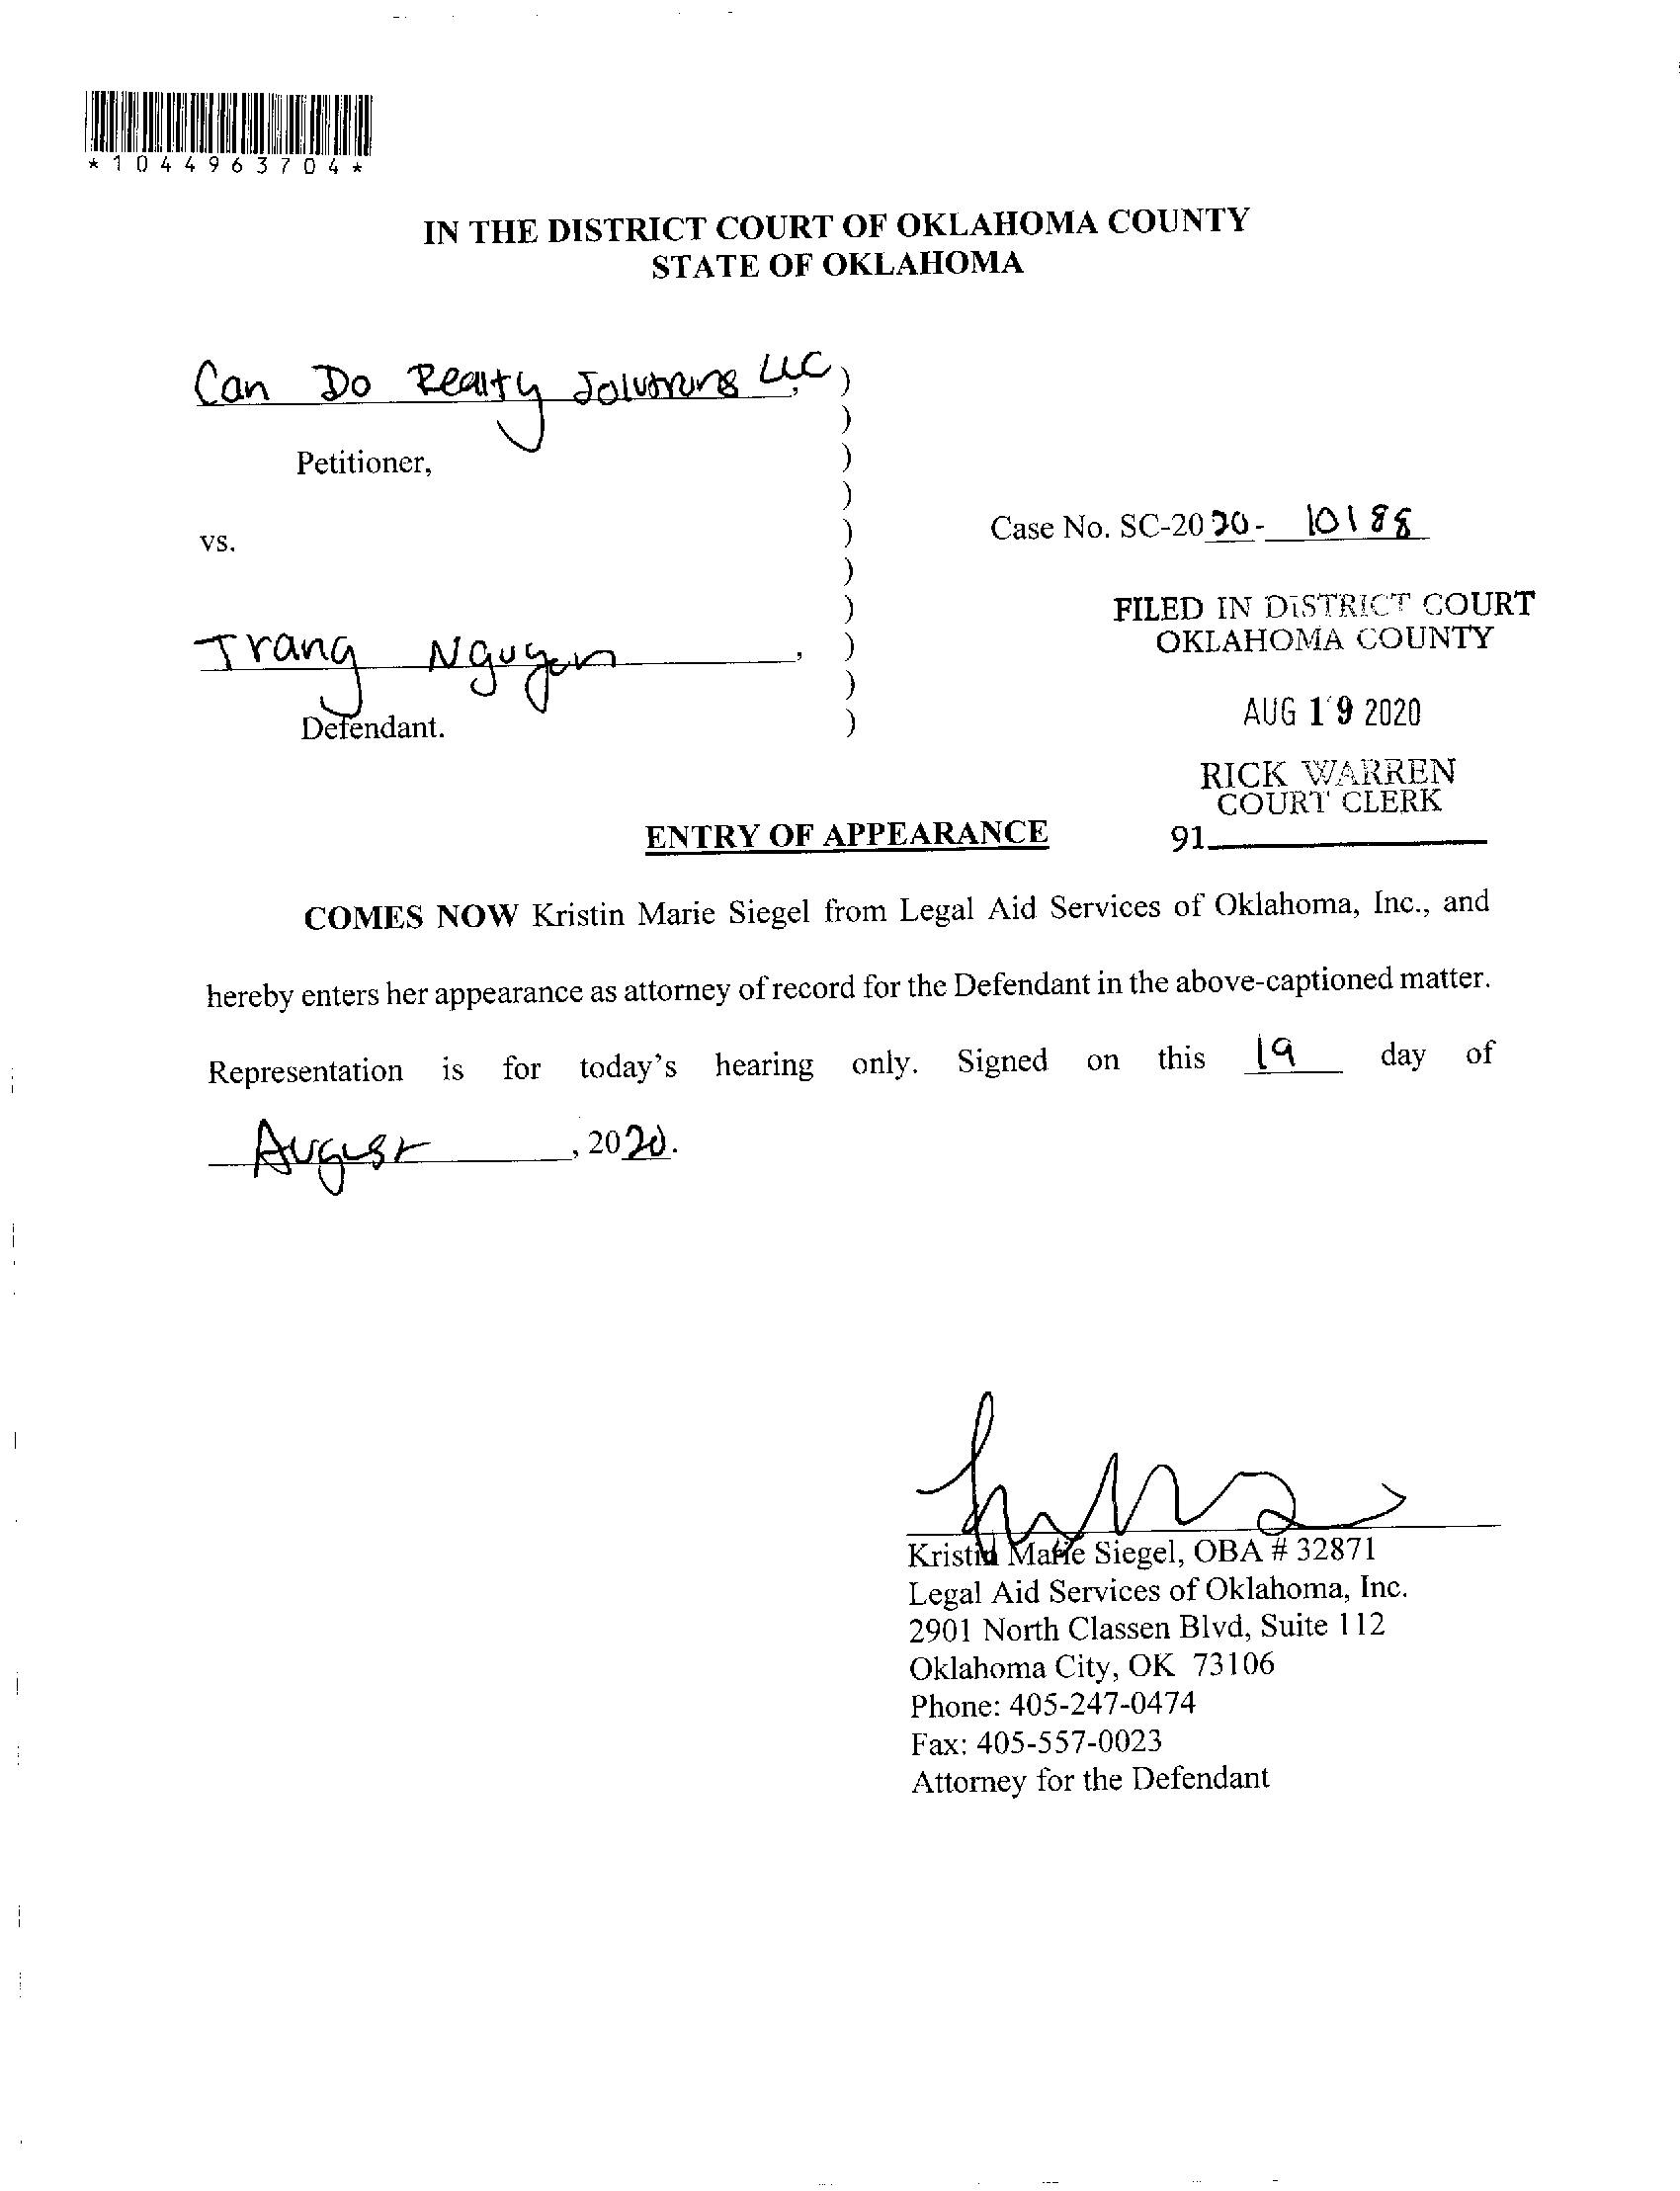 *1044963704*
IN THE DISTRICT COURT OF OKLAHOMA COUNTY
STATE OF OKLAHOMA
Can Do Realty Solutions LLC,
)
)
Petitioner,
)
)
vs.
)
Case No. SC-2020- 10188
)
)
FILED IN DISTRICT COURT
OKLAHOMA COUNTY
Trang Nguyen,
)
)
AUG 19 2020
Defendant.
)
RICK WARREN
COURT CLERK
91
ENTRY OF APPEARANCE
COMES NOW Kristin Marie Siegel from Legal Aid Services of Oklahoma, Inc., and
hereby enters her appearance as attorney of record for the Defendant in the above-captioned matter.
Representation is for today's hearing only. Signed on this 19 day of
August, 2020.
Kristin Marie Siegel, OBA # 32871
Legal Aid Services of Oklahoma, Inc.
2901 North Classen Blvd, Suite 112
Oklahoma City, OK 73106
Phone: 405-247-0474
Fax: 405-557-0023
Attorney for the Defendant